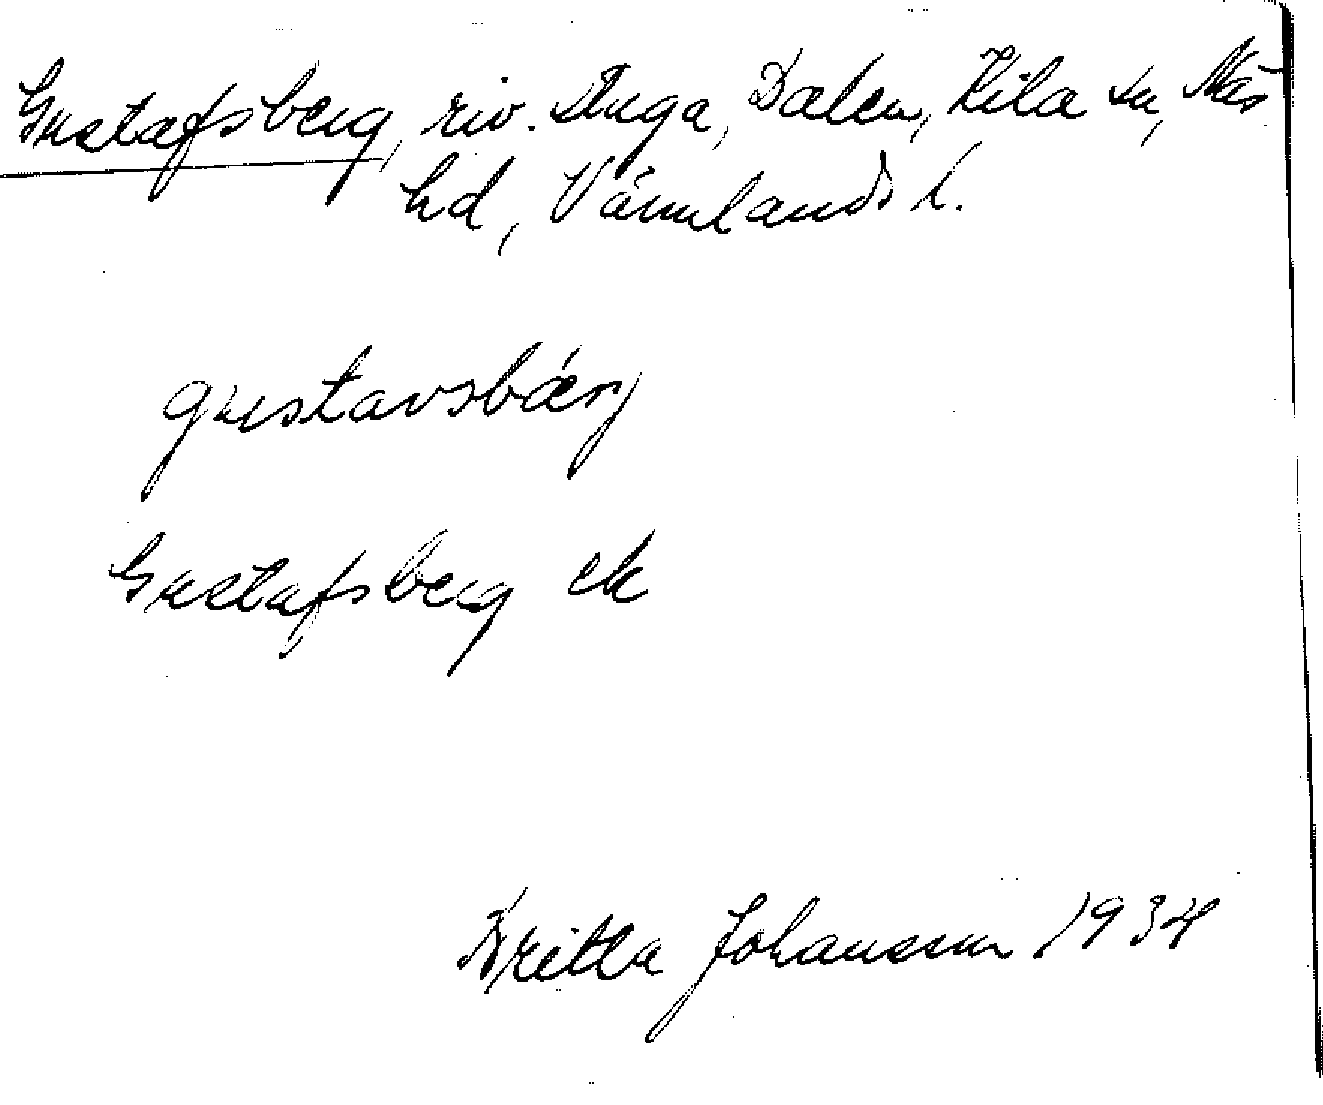 Gustafsberg, riv. stuga, Dalen, Kila sn, Näs
hd, Värmlands l.
gustavsbærj
Gustafsberg ek
Britta Johansson 1934